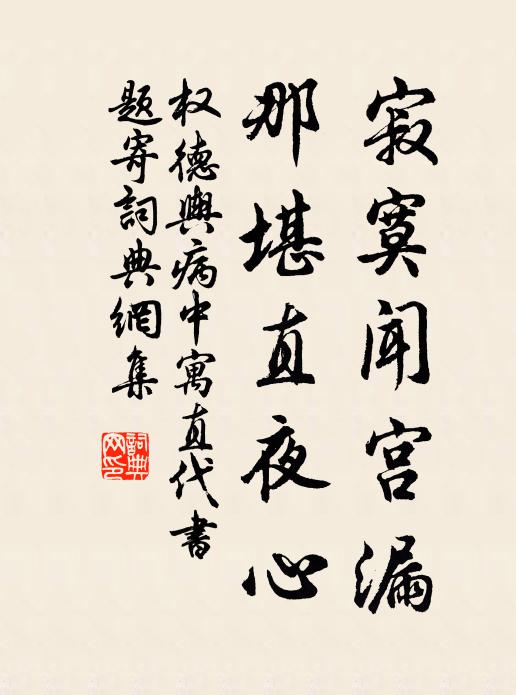 寂寞闻宫漏
那堪直夜心
权德舆病中寓直代书
题寄词典網集
詞典網印